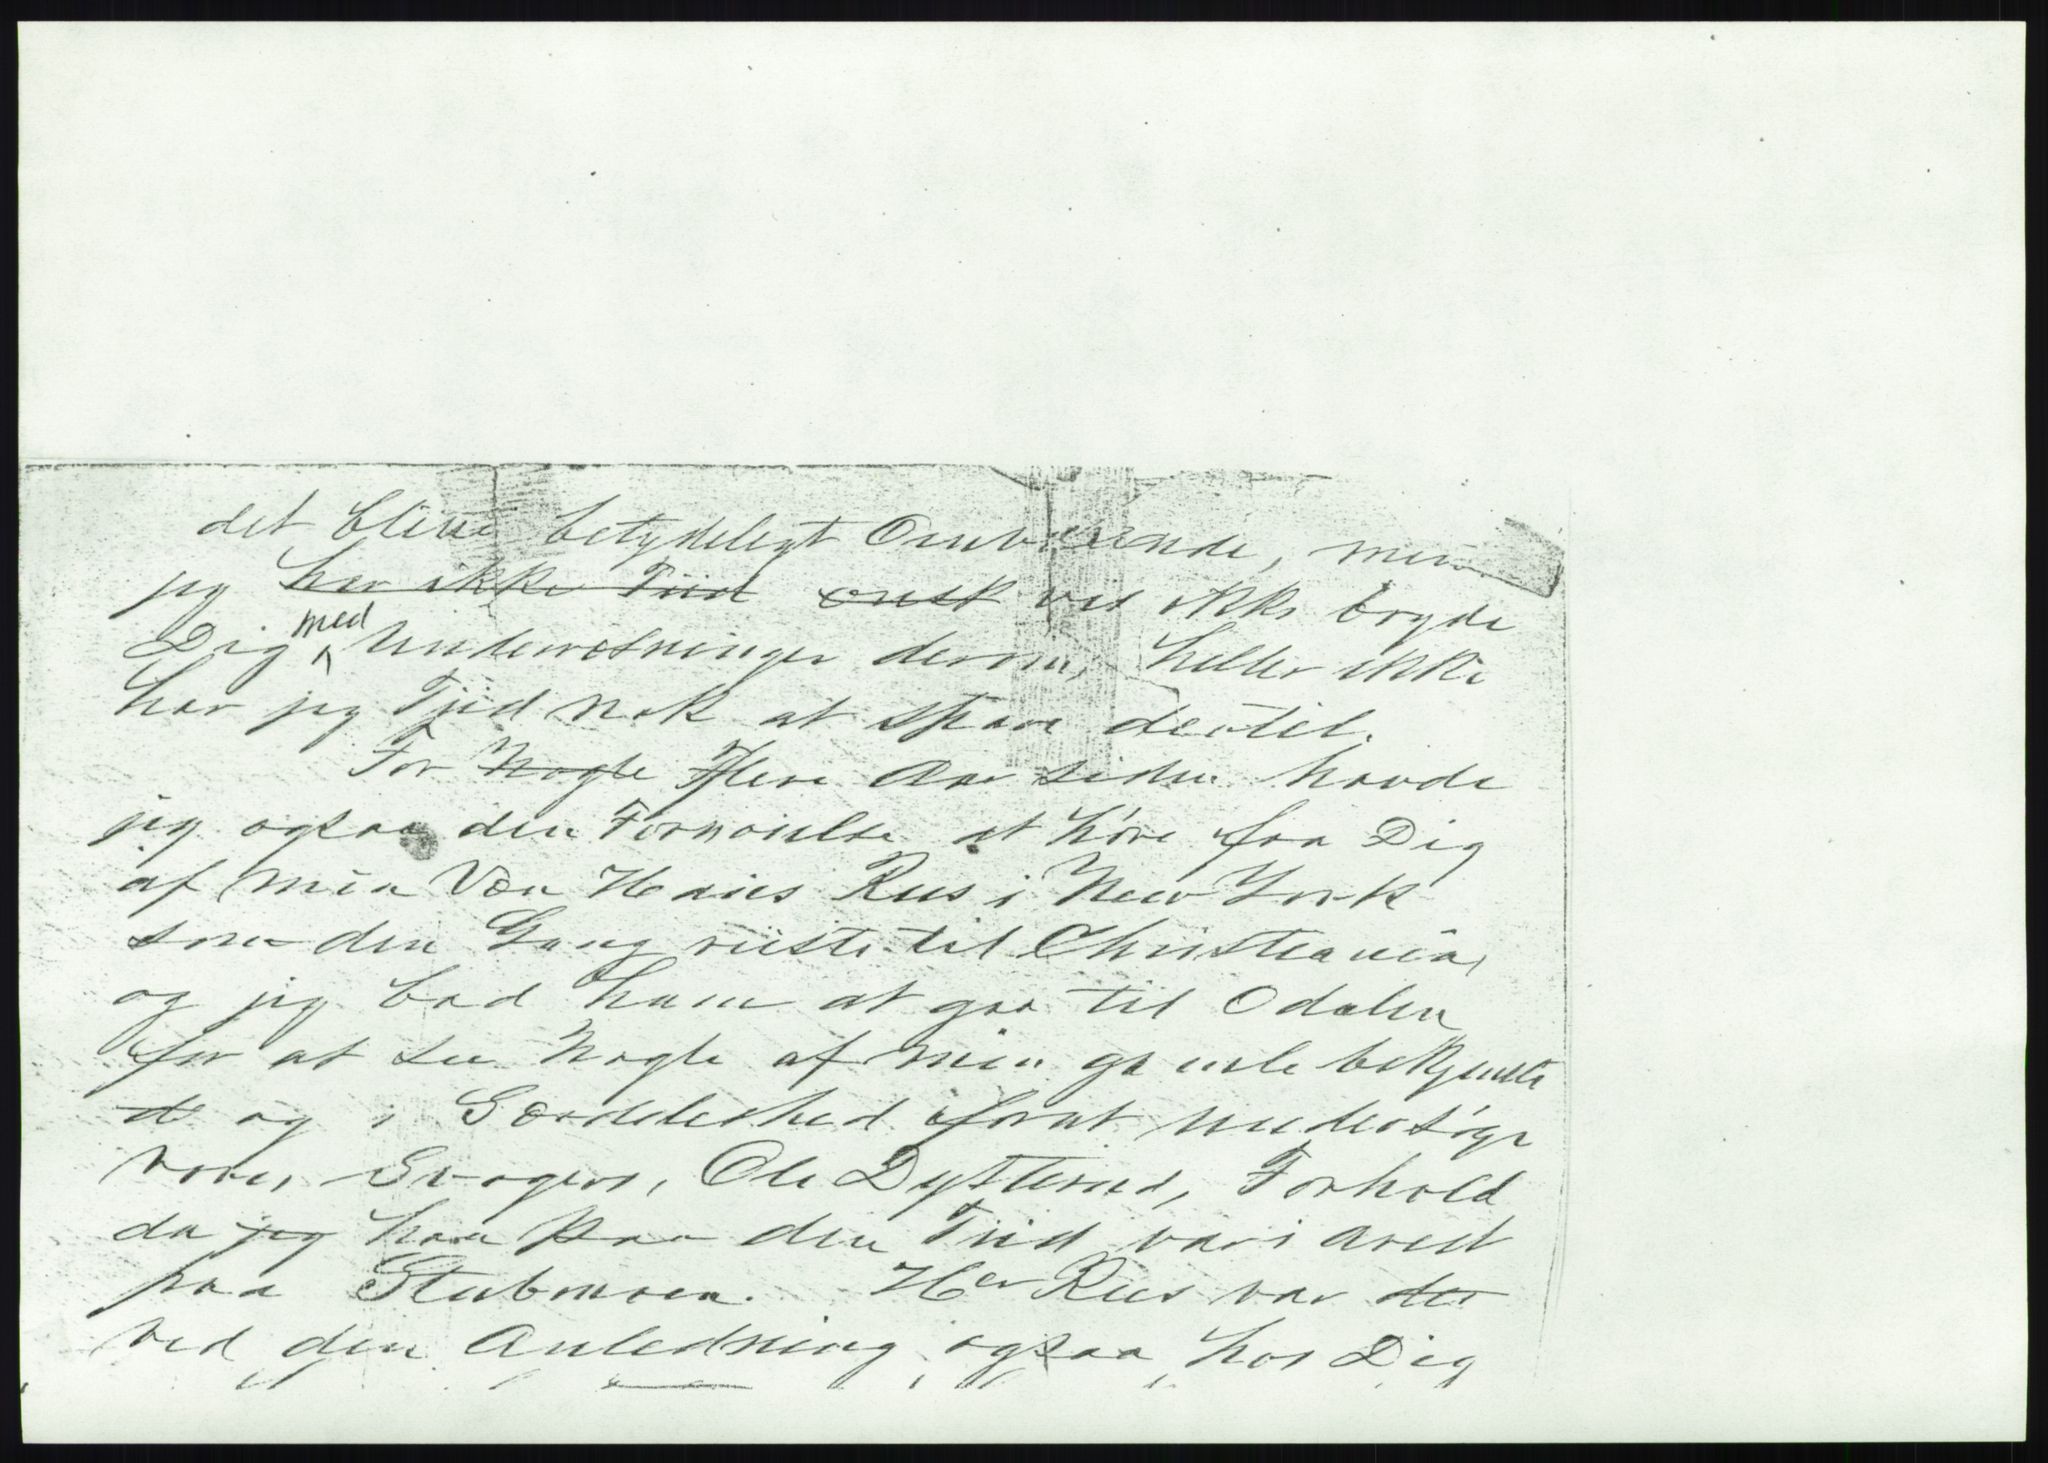 det blive betydeligt Omvexende, men
jeg har ikke Tiid ønsk vil ikke bryde
Dig med Underretninger derom, heller ikke
har jeg Tiid nok at spare dertil.
For Nogle Flere Aar siden havde
jeg ogsaa den Fornøielse at høre fra Dig
af min Ven Hans Rees i New York
som den Gang reiste til Christiania,
og jeg bad ham at gaa til Odalen
for at see Nogle af min gamle bekjendte
de og i Særdeleshed forat undersøge
vores Svogers, Ole Dysterud, Forhold
da jeg han paa den Tiid var i Arest
paa Stubmoen. Hr Rees var der
ved den Anledning ogsaa hos Dig